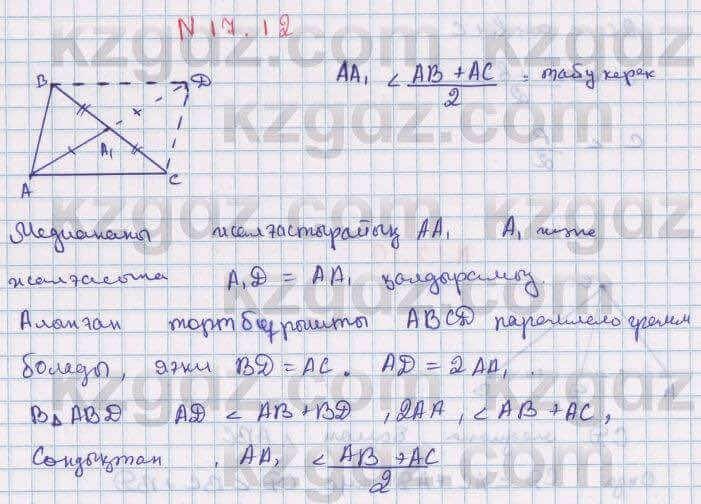 N 17.12
AA₁ < (AB + AC)/2 - табу керек
B D
A₁
A C
Медиананы жалғастырайық AA₁ A₁ және
жалғасына A₁D = AA₁ қалдырамыз.
Алынған төртбұрышты ABCD параллелограмм
болады, яғни BD = AC. AD = 2AA₁.
B△ABD AD < AB + BD, 2AA₁ < AB + AC,
Сондықтан, AA₁ < (AB + AC)/2
kzgdz.com
kzgdz.com
kzgdz.com
kzgdz.com
kzgdz.com
kzgdz.com